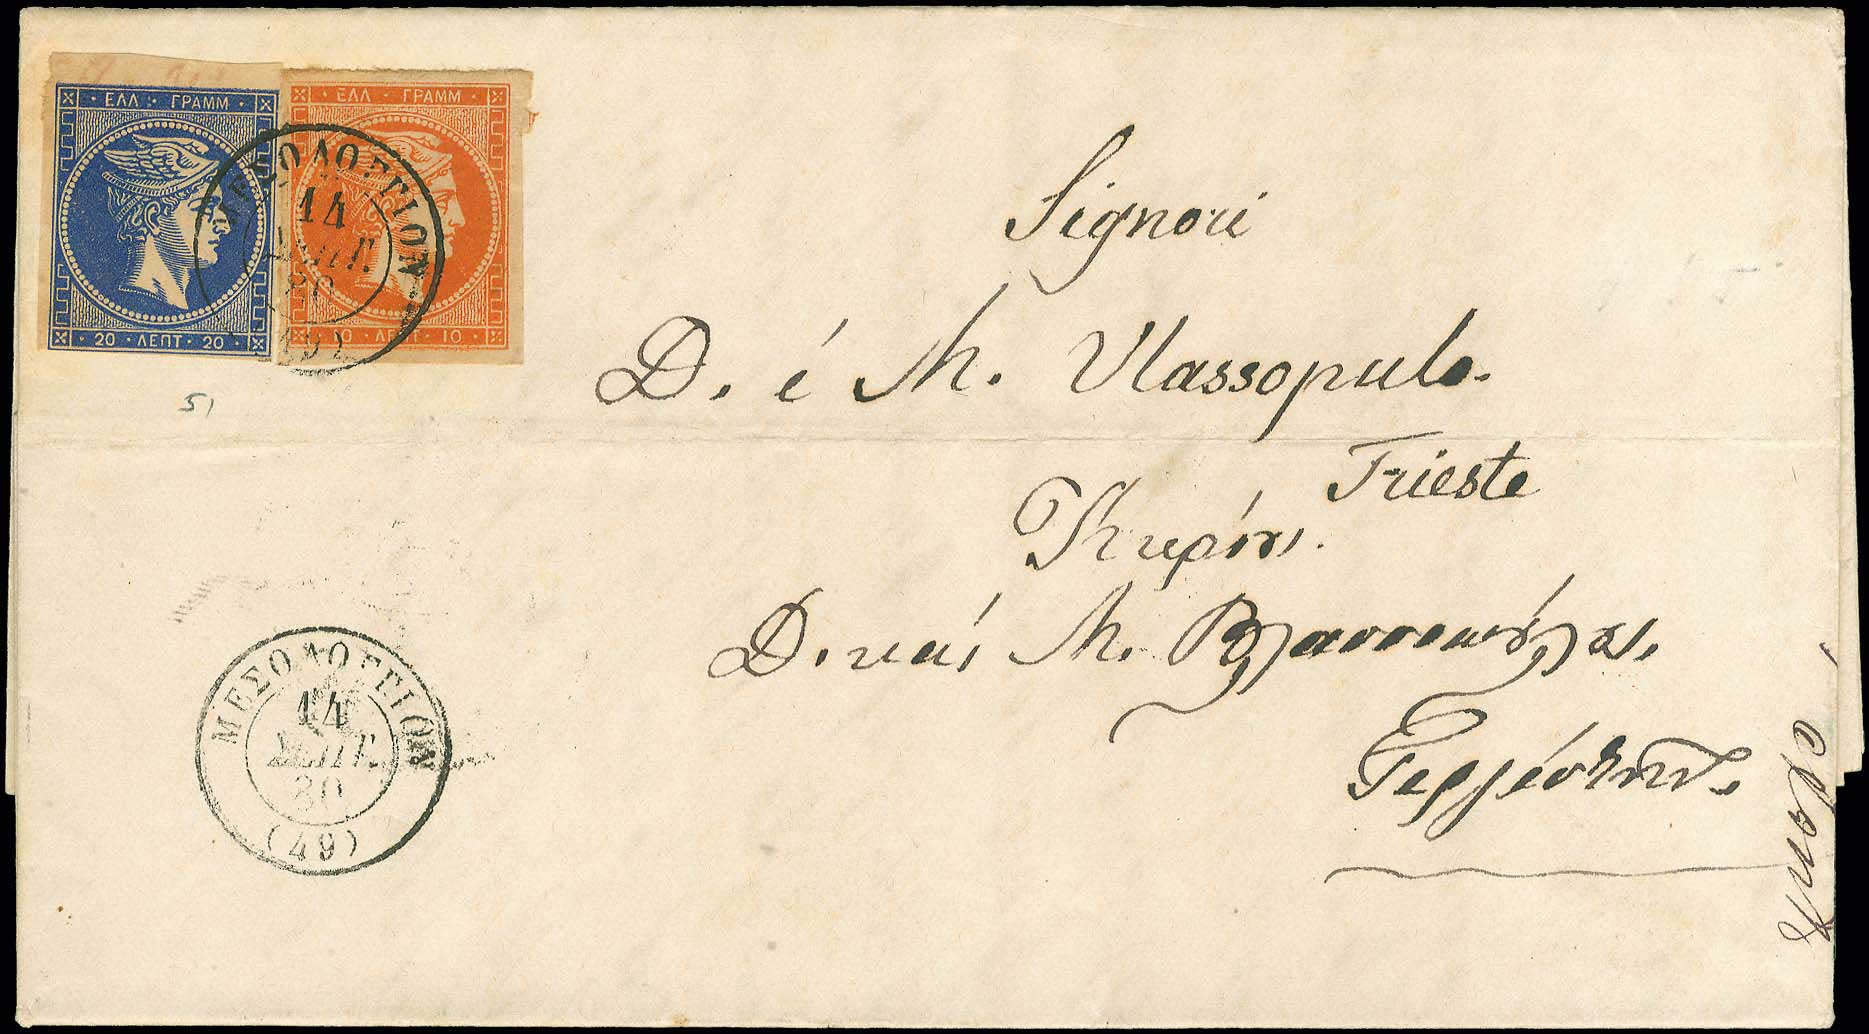 ΕΛΛ · ΓΡΑΜΜ
20 · ΛΕΠΤ · 20
ΕΛΛ · ΓΡΑΜΜ
10 · ΛΕΠΤ · 10
ΜΕΣΟΛΟΓΓΙΟΝ
14
ΣΕΠΤ.
80
(49)
51
Signori
D. é M. Vlassopulo.
Trieste
Κυρίοις.
Δ. καί Μ. Βλασσοπούλοις.
Τεργέστην.
ΜΕΣΟΛΟΓΓΙΟΝ
14
ΣΕΠΤ.
80
(49)